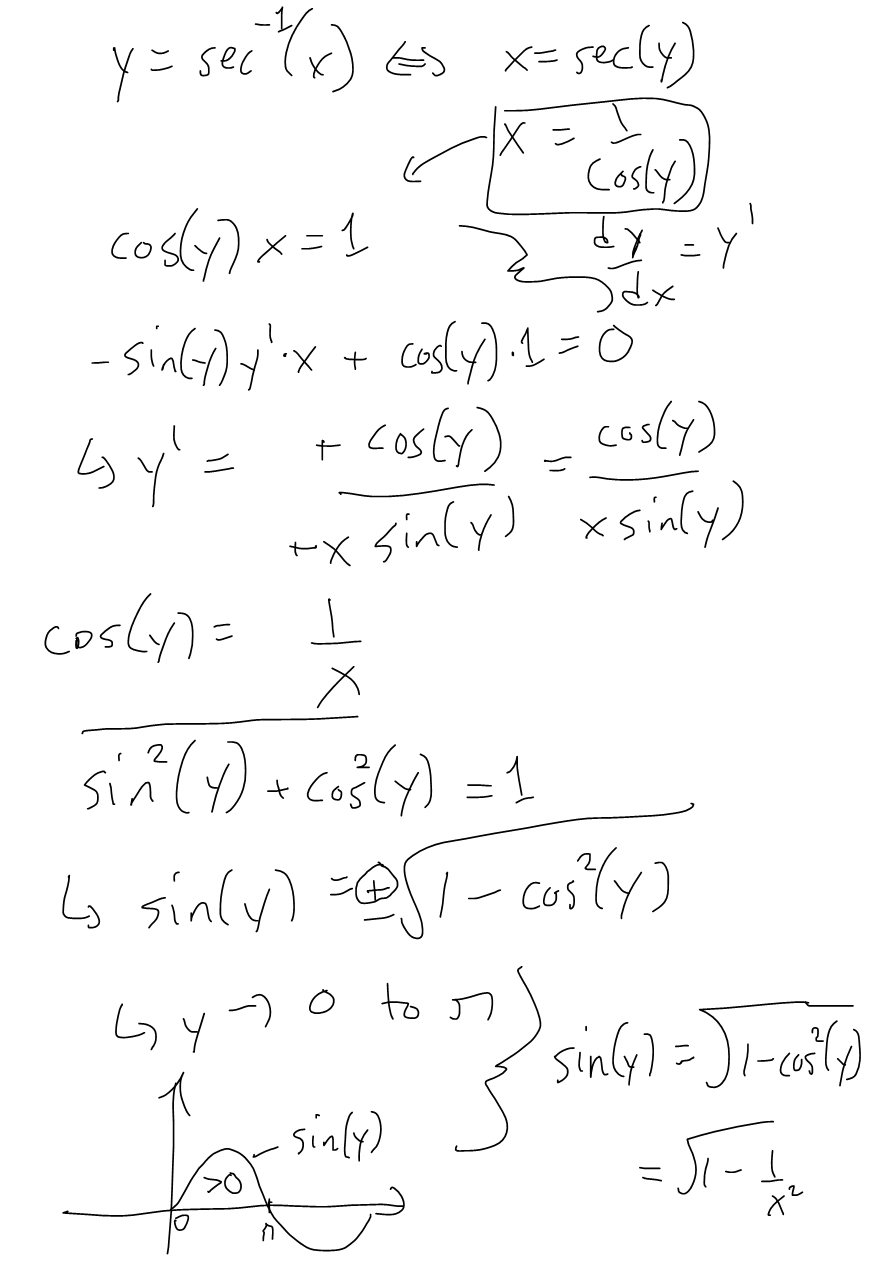 y = sec⁻¹(x) ⇔ x = sec(y)
x = 1/cos(y)
cos(y) x = 1
dy/dx = y'
-sin(y) y'·x + cos(y)·1 = 0
↳ y' = +cos(y)/+x sin(y) = cos(y)/x sin(y)
cos(y) = 1/x
sin²(y) + cos²(y) = 1
↳ sin(y) = ±√1 - cos²(y)
↳ y → 0 to π
sin(y) = √1 - cos²(y)
= √1 - 1/x²
sin(y)
>0
0 π